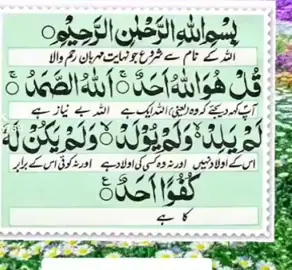 بِسْمِ اللهِ الرَّحْمٰنِ الرَّحِيْمِ ○
اللہ کے نام سے شروع جو نہایت مہربان رحم والا
قُلْ هُوَ اللهُ اَحَدٌ ۚ اَللهُ الصَّمَدُ ۚ
آپ کہہ دیجئے کہ وہ (یعنی) اللہ ایک ہے اللہ بے نیاز ہے
لَمْ يَلِدْ ۙ وَلَمْ يُوْلَدْ ۙ وَلَمْ يَكُنْ لَّهٗ
اس کے اولاد نہیں اور نہ وہ کسی کی اولاد ہے اور نہ کوئی اس کے برابر
كُفُوًا اَحَدٌ ○ ع
کا ہے